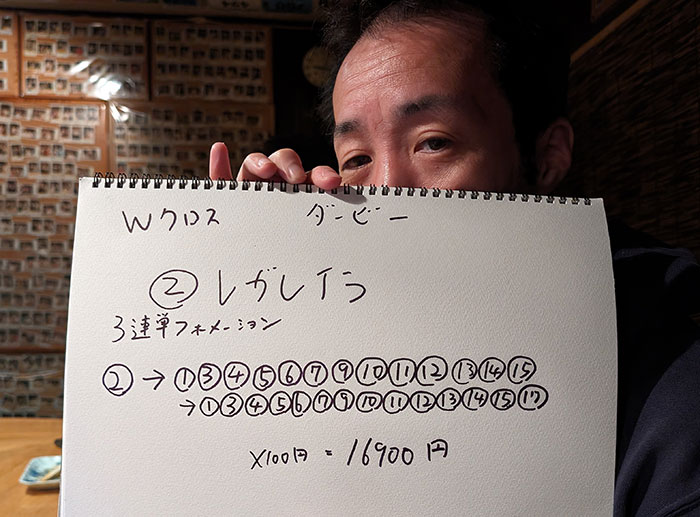 Wクロス ダービー
②レガレイラ
3連単フォメーション
②→①③④⑤⑥⑦⑨⑩⑪⑫⑬⑭⑮
→①③④⑤⑥⑦⑨⑩⑪⑫⑬⑭⑮⑰
×100円=16900円